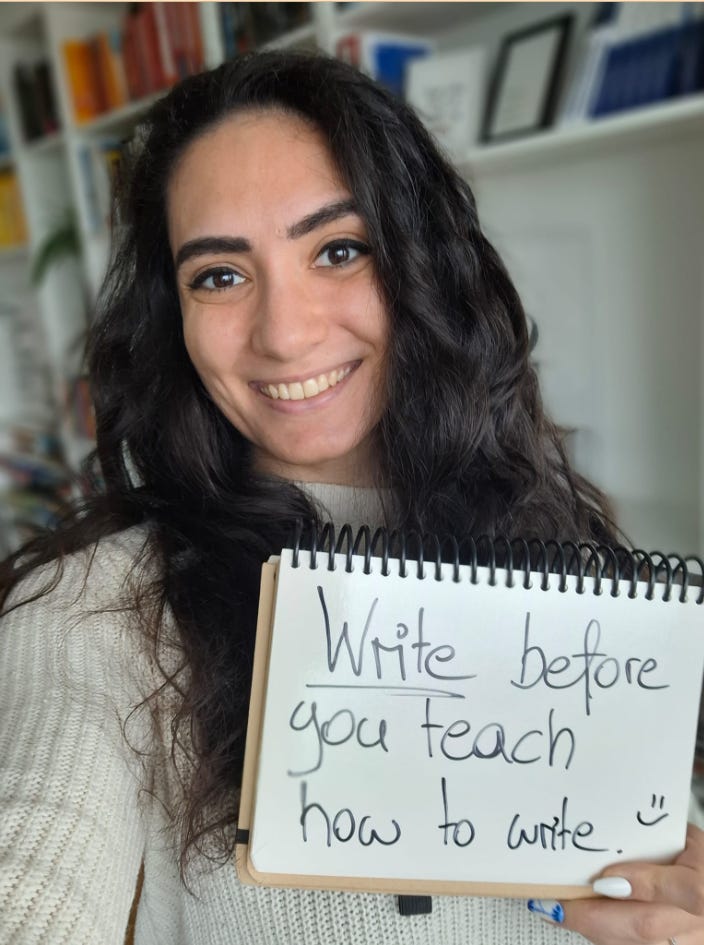 Write before
you teach
how to write.